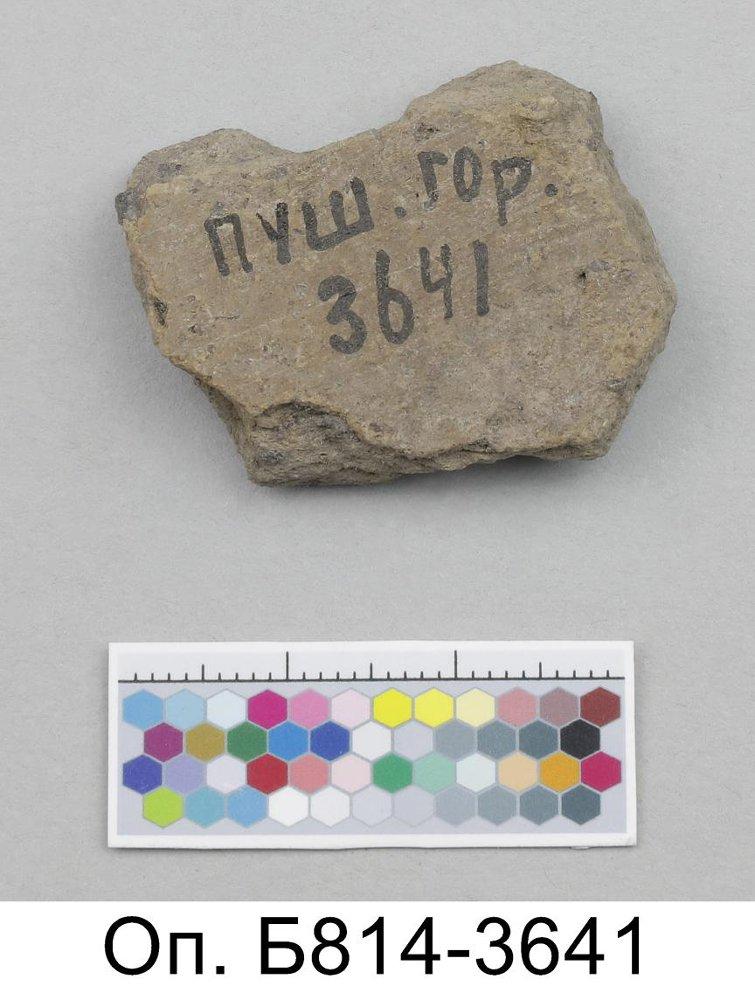 пуш. гор.
3641
Оп. Б814-3641